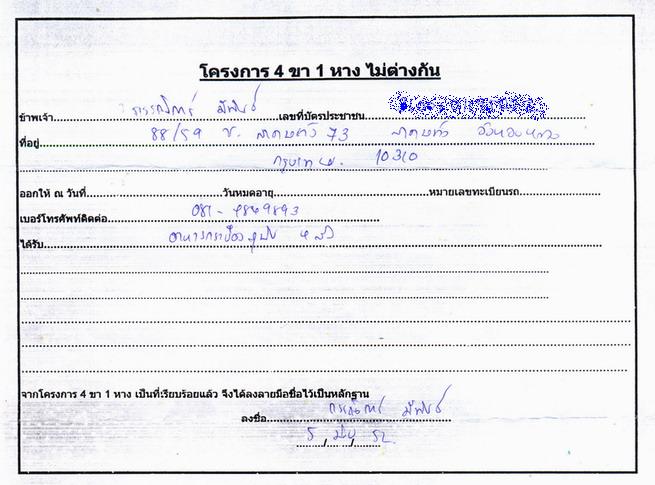 โครงการ 4 ขา 1 หาง ไม่ต่างกัน
ข้าพเจ้า เลขที่บัตรประชาชน
ที่อยู่ 88/59 ซ. ลาดพร้าว 73 ลาดพร้าว วังทองหลาง
กรุงเทพ. 10310
ออกให้ ณ วันที่ วันหมดอายุ หมายเลขทะเบียนรถ
เบอร์โทรศัพท์ติดต่อ 081-
ได้รับ
จากโครงการ 4 ขา 1 หาง เป็นที่เรียบร้อยแล้ว จึงได้ลงลายมือชื่อไว้เป็นหลักฐาน
ลงชื่อ
5 มิย 52